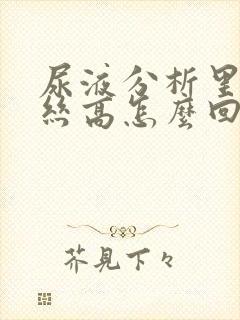 尿液分析里
丝高怎麼回
芥見下々